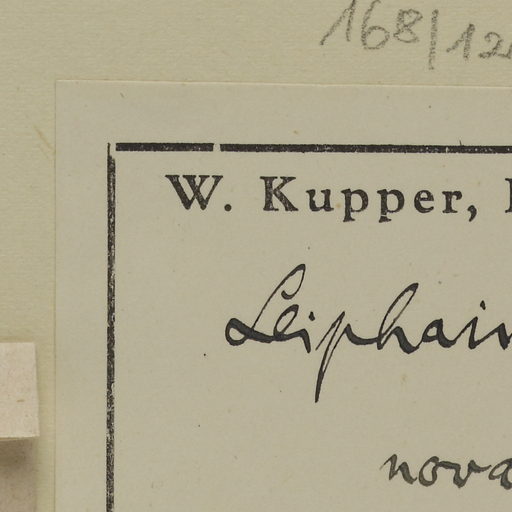 168/12
W. Kupper,
Leiphaim
nova